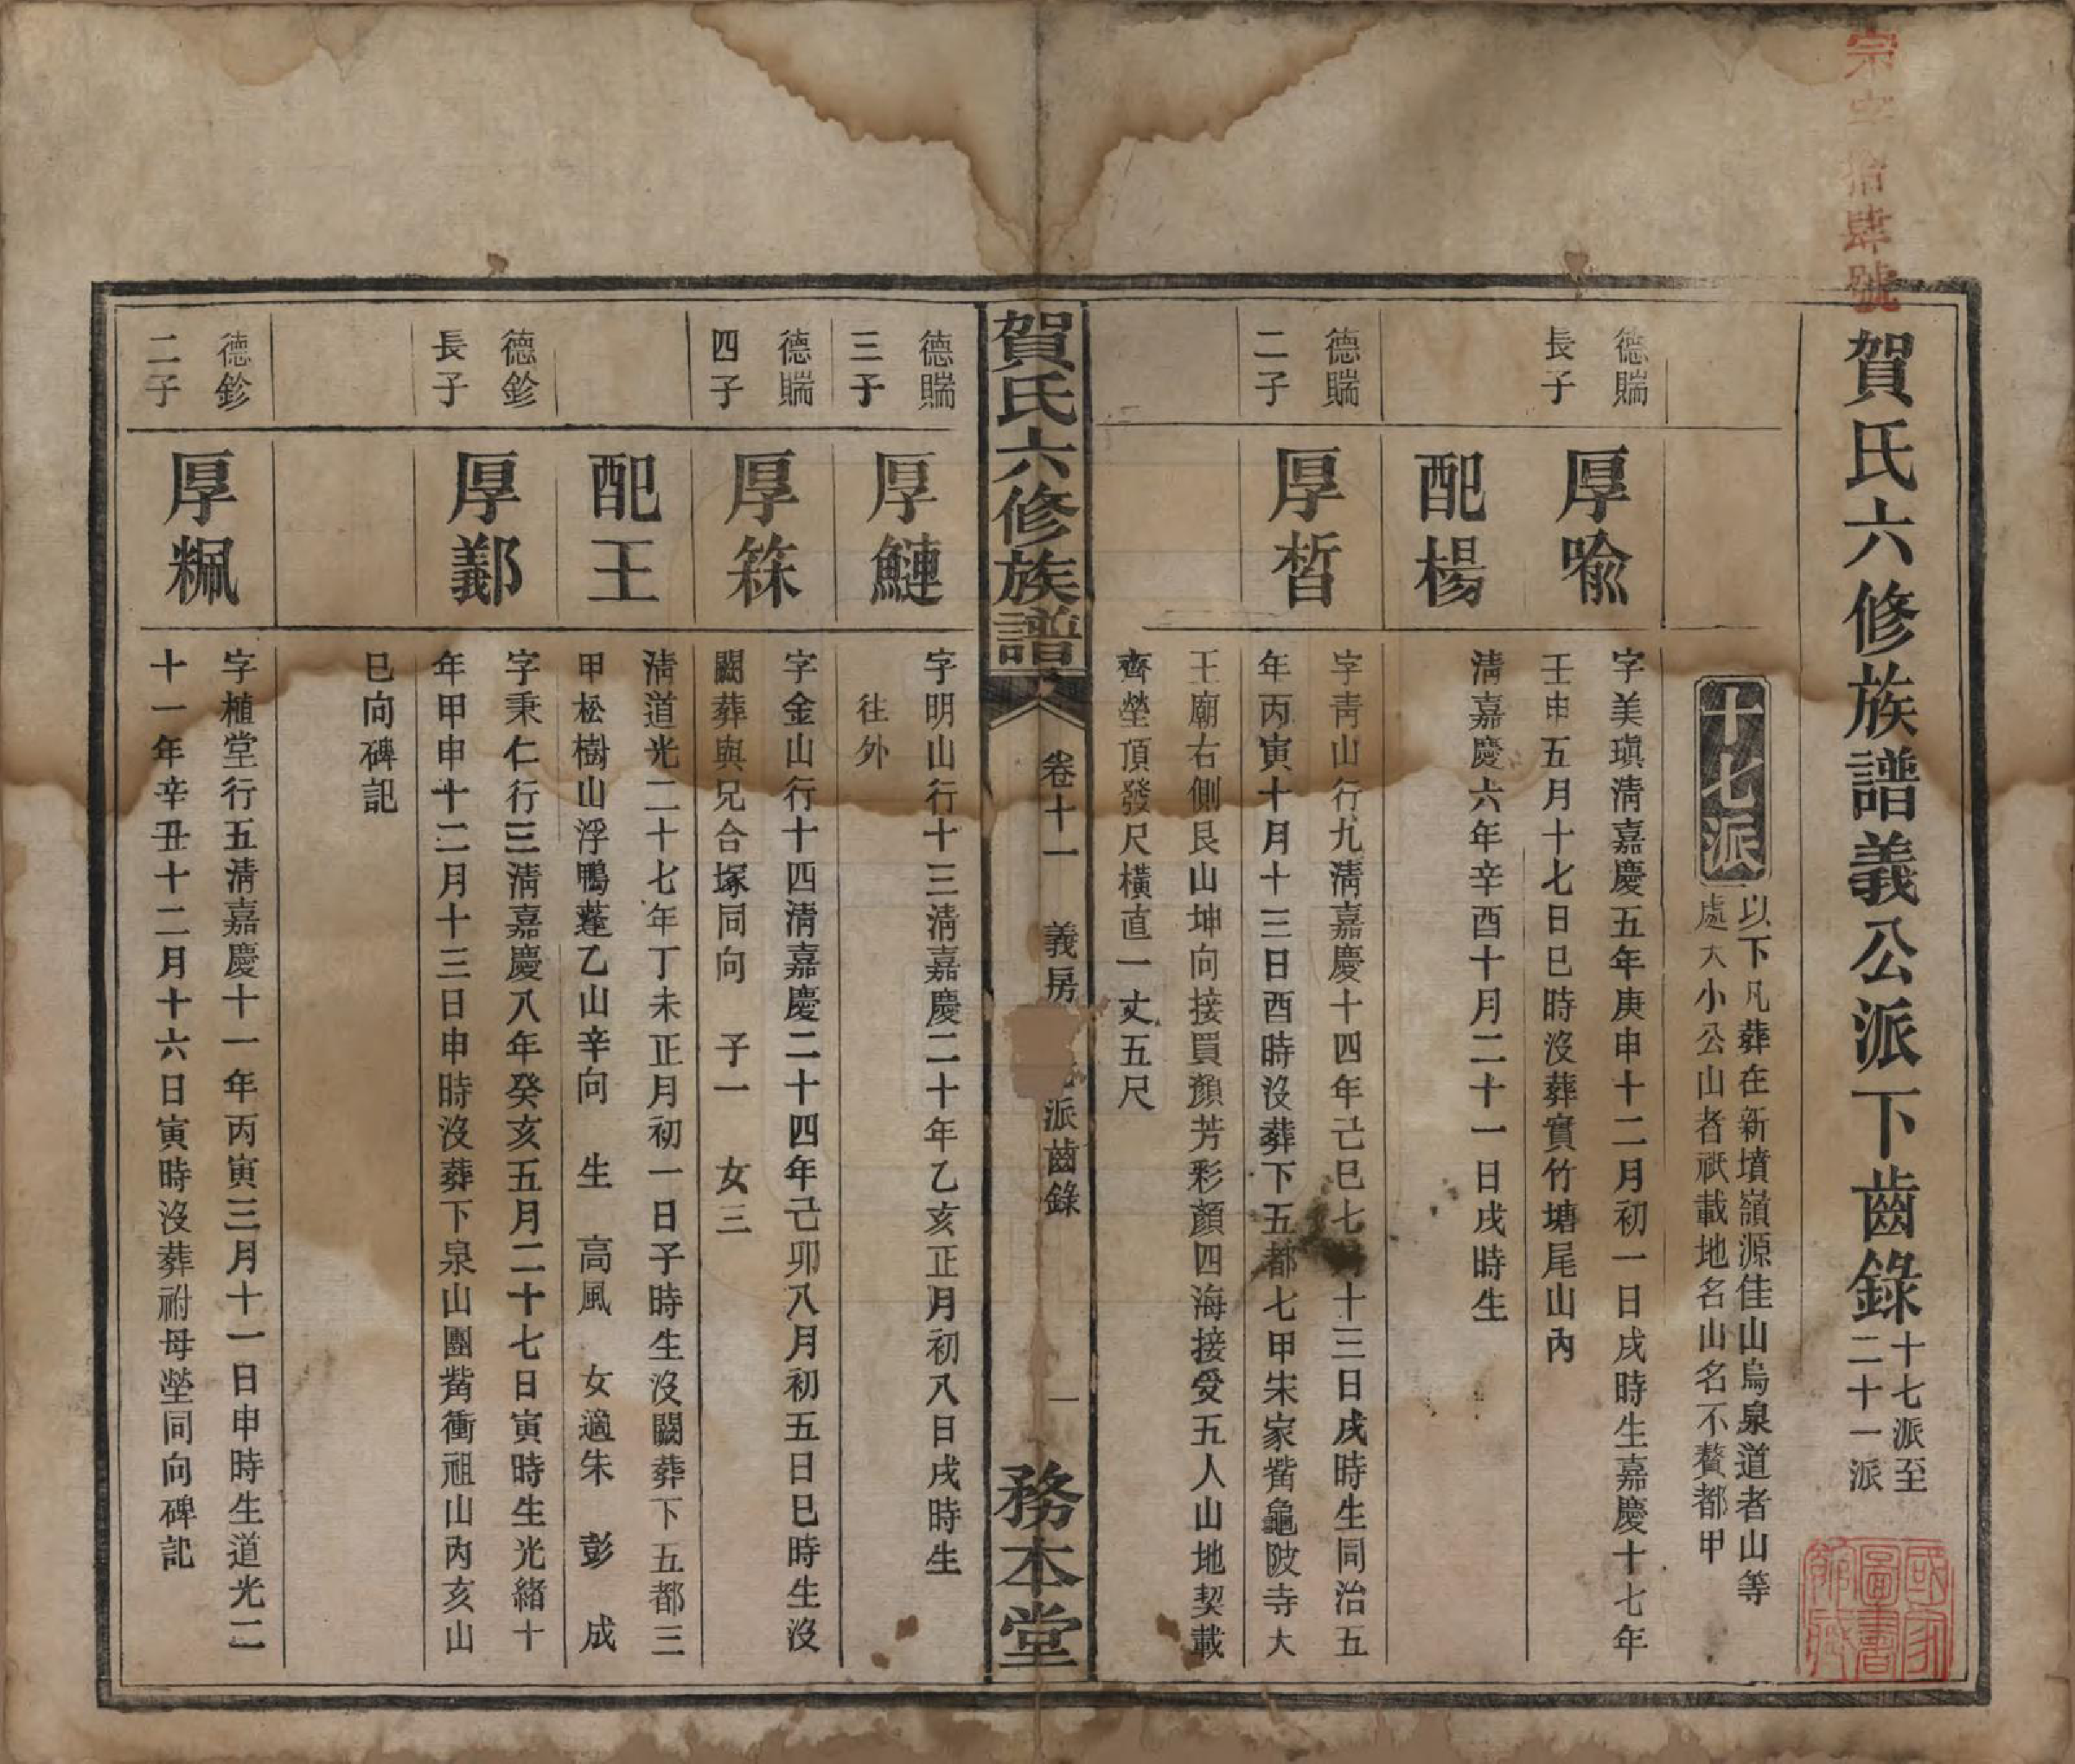 宗字拾肆號
賀氏六修族譜義公派下齒錄
十七派至
二十一派
十七派
以下凡葬在新墳嶺源佳山烏泉道者山等
處大小公山者祇載地名山名不贅都甲
德賱
長子
厚喻
字美瑱淸嘉慶五年庚申十二月初一日戌時生嘉慶十七年
壬申五月十七日巳時沒葬實竹塘尾山內
配楊
淸嘉慶六年辛酉十月二十一日戌時生
德賱
二子
厚皙
字靑山行九淸嘉慶十四年己巳七 十三日戌時生同治五
年丙寅十月十三日酉時沒葬下五都七甲朱家嘴龜陂寺大
王廟右側艮山坤向接買顏芳彩顏四海接受五人山地契載
齊塋頂發尺橫直一丈五尺
賀氏六修族譜
卷十一
義房 派齒錄
一
務本堂
德賱
三子
厚鰱
字明山行十三淸嘉慶二十年乙亥正月初八日戌時生
往外
德賱
四子
厚箖
字金山行十四淸嘉慶二十四年己卯八月初五日巳時生沒
闕葬與兄合塚同向 子一 女三
配王
淸道光二十七年丁未正月初一日子時生沒闕葬下五都三
甲松樹山浮鴨薘乙山辛向 生 高風 女適朱 彭 成
德鉁
長子
厚鄯
字秉仁行三淸嘉慶八年癸亥五月二十七日寅時生光緒十
年甲申十二月十三日申時沒葬下泉山團嘴衝祖山內亥山
巳向碑記
德鉁
二子
厚粷
字植堂行五淸嘉慶十一年丙寅三月十一日申時生道光二
十一年辛丑十二月十六日寅時沒葬祔母塋同向碑記
國家圖書館藏